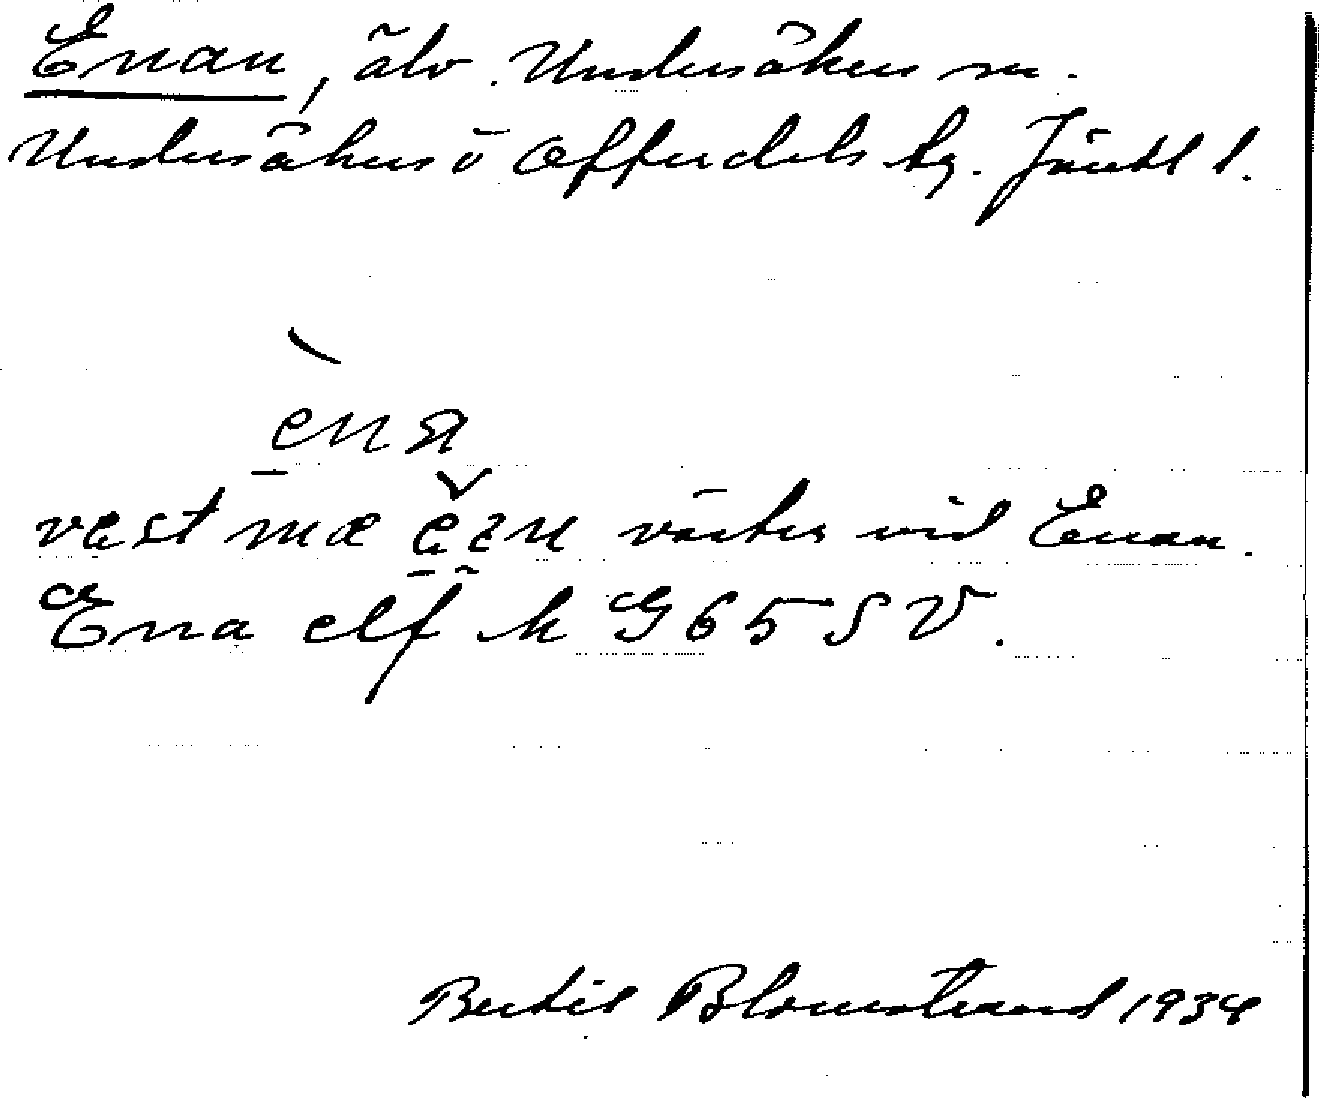 Enan, älv. Undersåkers sn.
Undersåkers o Offerdals tg. Jämtl l.
èna
væst mæ väster vid Enan.
Ena elf k G 65 SV.
Bertil Blomstrand 1934